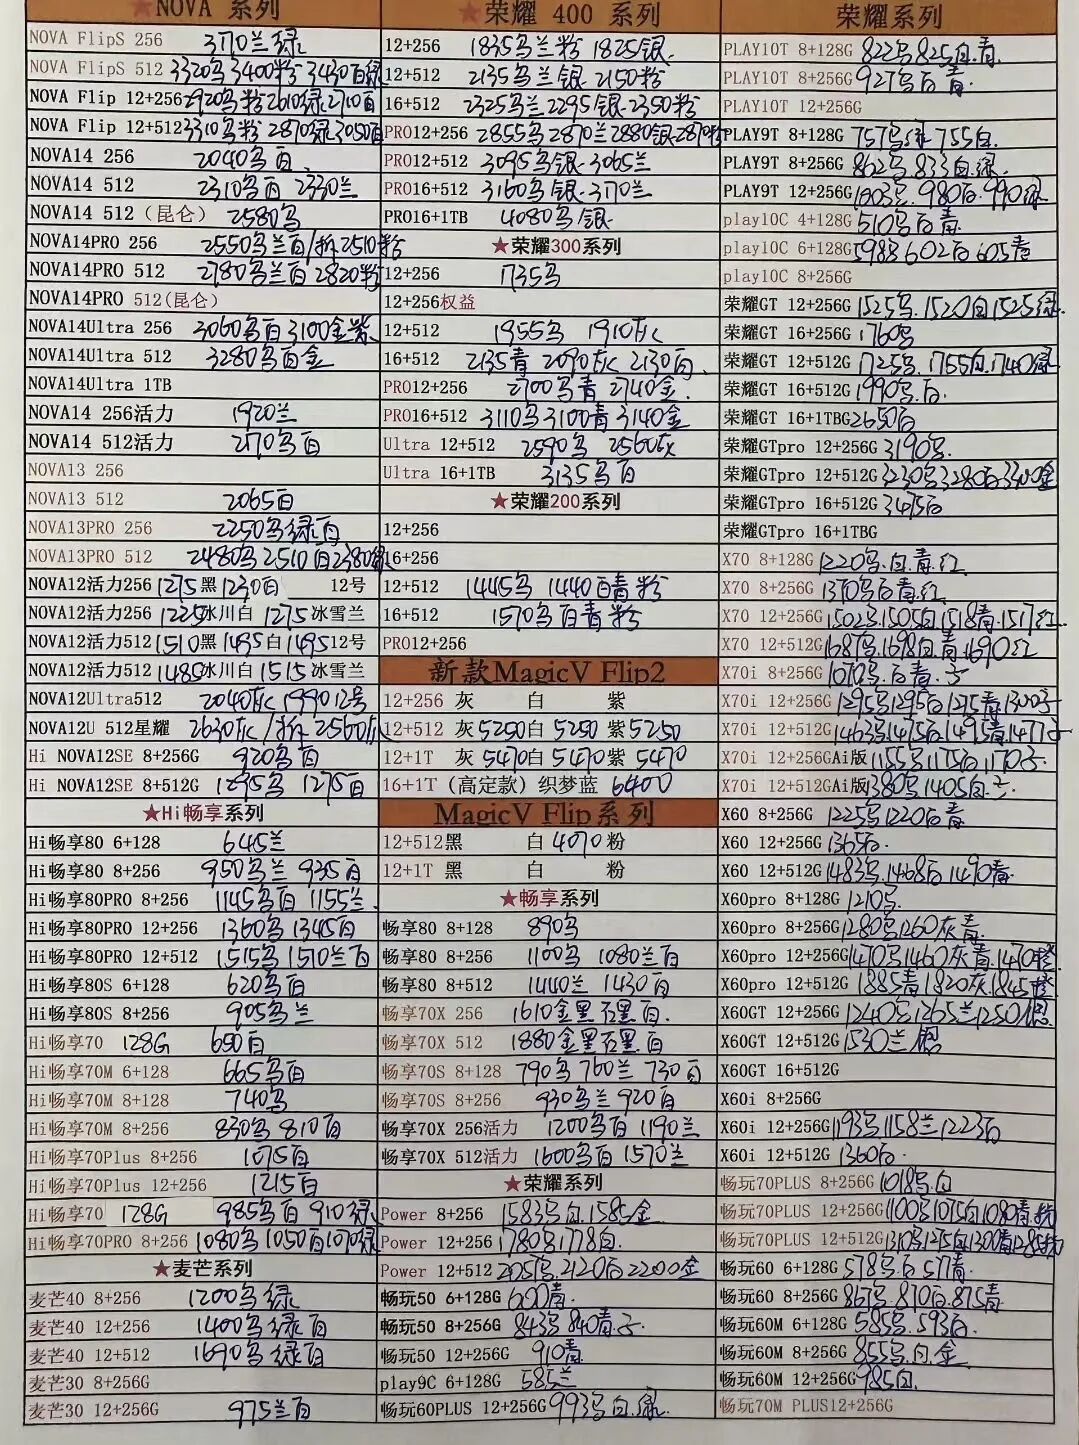 ★NOVA 系列
NOVA FlipS 256 3170兰绿
NOVA FlipS 512 3320乌3400粉3430百绿
NOVA Flip 12+256 2920乌粉2610绿2710百
NOVA Flip 12+512 3310乌粉 2870绿3050百
NOVA14 256 2040乌百
NOVA14 512 2310乌百 2330兰
NOVA14 512（昆仑） 2580乌
NOVA14PRO 256 2550乌兰百/拆2510粉
NOVA14PRO 512 2780乌兰百2820粉
NOVA14PRO 512(昆仑)
NOVA14Ultra 256 3060乌百3100金紫
NOVA14Ultra 512 3280乌百金
NOVA14Ultra 1TB
NOVA14 256活力 1920兰
NOVA14 512活力 2170乌百
NOVA13 256
NOVA13 512 2065百
NOVA13PRO 256 2250乌绿百
NOVA13PRO 512 2480乌2510百2380
NOVA12活力256 1275黑1230百 12号
NOVA12活力256 1225冰川白 1275冰雪兰
NOVA12活力512 1510黑1495白1495 12号
NOVA12活力512 1485冰川白1515冰雪兰
NOVA12Ultra512 2040灰1990 12号
NOVA12U 512星耀 2630灰/拆2560
Hi NOVA12SE 8+256G 920乌百
Hi NOVA12SE 8+512G 1295乌 1275百
★Hi畅享系列
Hi畅享80 6+128 645兰
Hi畅享80 8+256 950乌兰 935百
Hi畅享80PRO 8+256 1145乌百 1155兰
Hi畅享80PRO 12+256 1360乌1345百
Hi畅享80PRO 12+512 1515乌1510兰百
Hi畅享80S 6+128 620乌百
Hi畅享80S 8+256 905乌兰
Hi畅享70 128G 650百
Hi畅享70M 6+128 665乌百
Hi畅享70M 8+128 740乌
Hi畅享70M 8+256 830乌810百
Hi畅享70Plus 8+256 1075百
Hi畅享70Plus 12+256 1215百
Hi畅享70 128G 985乌百910绿
Hi畅享70PRO 8+256 1080乌1050百1070绿
★麦芒系列
麦芒40 8+256 1200乌绿
麦芒40 12+256 1400乌绿百
麦芒40 12+512 1690乌绿百
麦芒30 8+256G
麦芒30 12+256G 975兰百
★荣耀 400 系列
12+256 1835乌兰粉 1825银
12+512 2135乌兰银 2150粉
16+512 2325乌兰2295银2350粉
PRO12+256 2855乌2870兰2880银2870粉
PRO12+512 3095乌银3065兰
PRO16+512 3160乌银3170兰
PRO16+1TB 4080乌/银
★荣耀300系列
12+256 1735乌
12+256权益
12+512 1955乌 1910灰
16+512 2135青 2090灰 2130百
PRO12+256 2700乌青 2740金
PRO16+512 3110乌3100青3140金
Ultra 12+512 2590乌 2560灰
Ultra 16+1TB 3135乌百
★荣耀200系列
12+256
16+256
12+512 1445乌 1440百青粉
16+512 1570乌百青粉
PRO12+256
新款MagicV Flip2
12+256 灰 白 紫
12+512 灰5250白 5250 紫5250
12+1T 灰 5470白 5470 紫 5470
16+1T（高定款）织梦蓝 6400
MagicV Flip系列
12+512黑 白 4070 粉
12+1T 黑 白 粉
★畅享系列
畅享80 8+128 890乌
畅享80 8+256 1100乌 1080兰百
畅享80 8+512 1440兰 1430百
畅享70X 256 1610金黑石墨百
畅享70X 512 1880金黑石墨百
畅享70S 8+128 790乌 760兰 730百
畅享70S 8+256 930乌兰920百
畅享70X 256活力 1200乌百1190兰
畅享70X 512活力 1600乌百1570兰
★荣耀系列
Power 8+256 1583乌白.1585金
Power 12+256 1780乌1778白
Power 12+512 2057乌.2120白2200金
畅玩50 6+128G 600青
畅玩50 8+256G 843乌840青
畅玩50 12+256G 910青
play9C 6+128G 585兰
畅玩60PLUS 12+256G 993乌白.绿
荣耀系列
PLAY10T 8+128G 822乌825白.青
PLAY10T 8+256G 927乌白青
PLAY10T 12+256G
PLAY9T 8+128G 757乌绿755白
PLAY9T 8+256G 862乌.833白.绿
PLAY9T 12+256G 1003乌.980白.990绿
play10C 4+128G 510乌白青
play10C 6+128G 598乌602白605青
play10C 8+256G
荣耀GT 12+256G 1525乌.1520白1525绿
荣耀GT 16+256G 1760乌
荣耀GT 12+512G 1725乌.1755白.1740绿
荣耀GT 16+512G 1990乌.白
荣耀GT 16+1TBG 2650白
荣耀GTpro 12+256G 3190乌
荣耀GTpro 12+512G 3230乌3280白3300金
荣耀GTpro 16+512G 3475白
荣耀GTpro 16+1TBG
X70 8+128G 1220乌.白.青.红
X70 8+256G 1370乌白青红
X70 12+256G 1502乌.1505白1518青.1517红
X70 12+512G 1687乌.1698白.青.1690红
X70i 8+256G 1070乌.白青.
X70i 12+256G 1295乌1295白1275青1300
X70i 12+512G 1463乌1475白1495青1477
X70i 12+256GAi版 1185乌1175白1170
X70i 12+512GAi版 1380乌1405白
X60 8+256G 1225乌1220白青
X60 12+256G 1365白
X60 12+512G 1483乌.1468白1490青
X60pro 8+128G 1210乌
X60pro 8+256G 1280乌1260灰青
X60pro 12+256G 1470乌1460灰青.1470橙
X60pro 12+512G 1885青1820灰.1845橙
X60GT 12+256G 1240乌1265兰1250银
X60GT 12+512G 1530兰银
X60GT 16+512G
X60i 8+256G
X60i 12+256G 1193乌1158兰1223白
X60i 12+512G 1360白
畅玩70PLUS 8+256G 1018乌.白
畅玩70PLUS 12+256G 1100乌1075白1080青
畅玩70PLUS 12+512G 1310乌1275白1200青1285
畅玩60 6+128G 578乌.白577青
畅玩60 8+256G 867乌.870白.875青
畅玩60M 6+128G 585乌.593白.
畅玩60M 8+256G 855乌.白.金
畅玩60M 12+256G 985白
畅玩70M PLUS12+256G